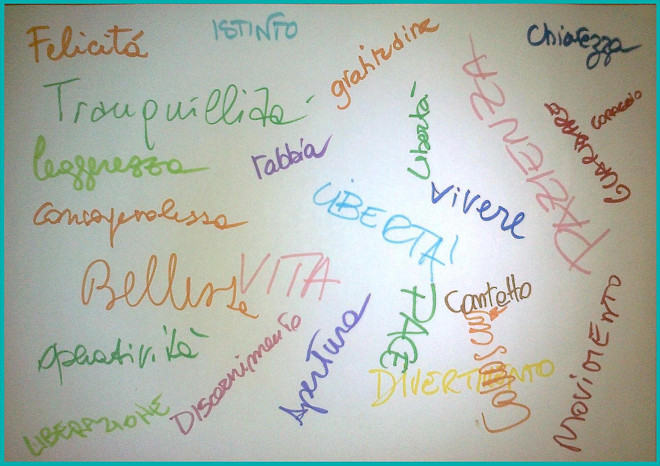 Felicitá
ISTINTO
gratitudine
Chiarezza
Tranquillità
Libertà
PAZIENZA
coraggio
leggerezza
rabbia
consapevolezza
LIBERTA'
vivere
Bellezza
VITA
PACE
Contatto
MOVIMENTO
Apertura
DIVERTIMENTO
Discernimento
LIBERAZIONE